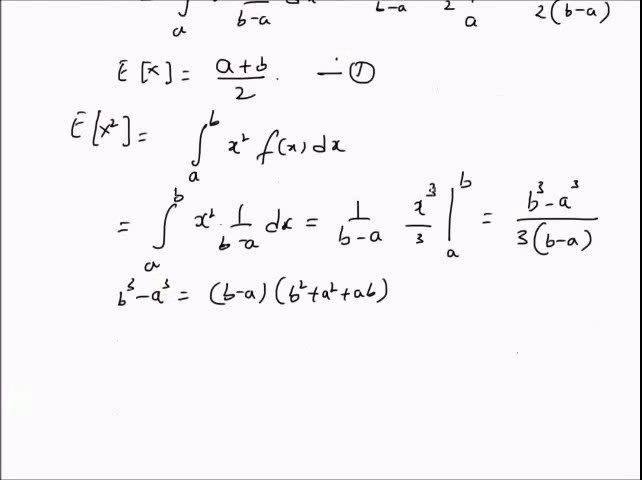 a b-a b-a 2 a 2(b-a)
E[x] = a+b/2. — ①
E[x²] = ∫_a^b x² f(x) dx
= ∫_a^b x² · 1/b-a dx = 1/b-a x³/3 |_a^b = b³-a³/3(b-a)
b³-a³ = (b-a)(b²+a²+ab)